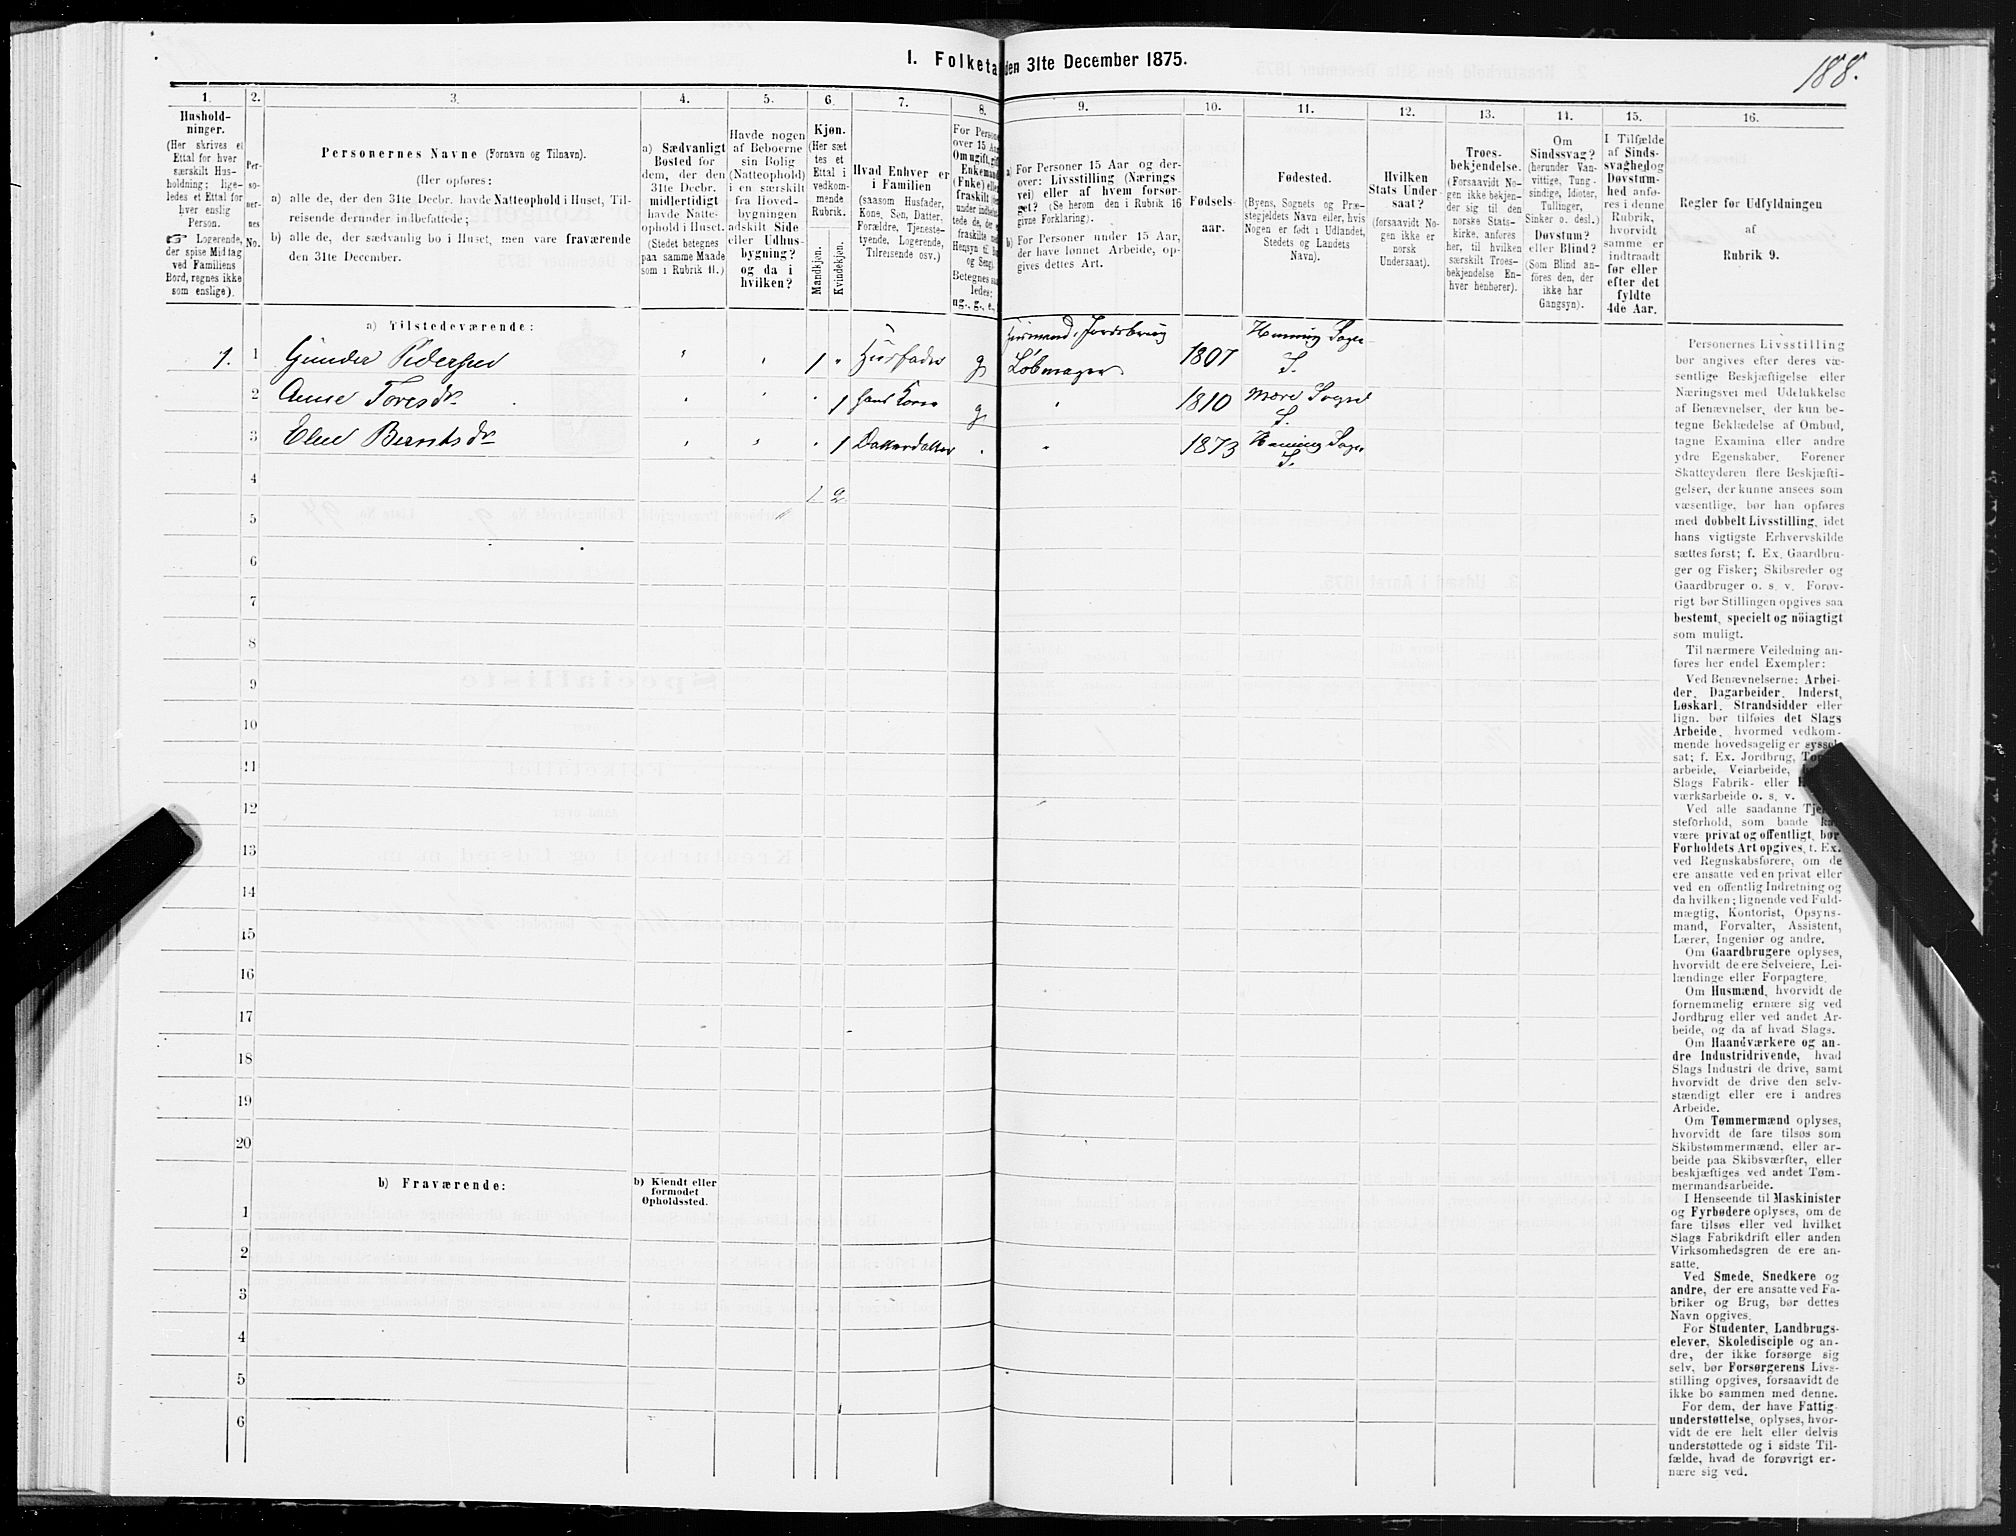 I. Folketa
den 31te December 1875.
188.
1.
2.
3.
4.
5.
6.
7.
8.
9.
10.
11.
12.
13.
14.
15.
16.
Hushold-
ninger.
(Her skrives et
Ettal for hver
særskilt Hus-
holdning; lige-
ledes et Ettal for
hver enslig
Person.
☞ Logerende,
der spise Middag
ved Familiens
Bord, regnes ikke
som enslige).
Per-
so-
ner-
nes
No.
Personernes Navne (Fornavn og Tilnavn).
(Her opføres:
a) alle de, der den 31te Decbr. havde Natteophold i Huset, Til-
reisende derunder indbefattede;
b) alle de, der sædvanlig bo i Huset, men vare fraværende
den 31te December.
a) Sædvanligt
Bosted for
dem, der den
31te Decbr.
midlertidigt
havde Natte-
ophold i Huset.
(Stedet betegnes
paa samme Maade
som i Rubrik 11.)
Havde nogen
af Beboerne
sin Bolig
(Natteophold)
i en særskilt
fra Hoved-
bygningen
adskilt Side
eller Udhus-
bygning?
og da i
hvilken?
Kjøn.
(Her sæt-
tes et
Ettal i
vedkom-
mende
Rubrik.
Mandkjøn.
Kvindekjøn.
Hvad Enhver er
i Familien
(saasom Husfader,
Kone, Søn, Datter,
Forældre, Tjeneste-
tyende, Logerende,
Tilreisende osv.)
For Persone
over 15 Aa
Om ugift, gift
Enkemand
(Enke) elle
fraskilt
Betegnes saa
ledes:
ug., g., e.,
a) For Personer 15 Aar og der-
over: Livsstilling (Nærings
vei) eller af hvem forsør-
get? (Se herom den i Rubrik 16
givne Forklaring).
b) For Personer under 15 Aar,
der have lønnet Arbeide, op-
gives dettes Art.
Fødsels-
aar.
Fødested.
(Byens, Sognets og Præ-
stegjeldets Navn eller, hvis
Nogen er født i Udlandet,
Stedets og Landets
Navn).
Hvilken
Stats Under-
saat?
(forsaavidt No-
gen ikke er
norsk
Undersaat).
Troes-
bekjendelse.
(Forsaavidt No-
gen ikke bekjen-
der sig til den
norske Stats-
kirke, anføres
her, til hvilken
særskilt Troes-
bekjendelse En-
hver henhører).
Om
Sindssvag?
(herunder Van-
vittige, Tung-
sindige, Idioter,
Tullinger,
Sinker o. desl.)
Døvstum?
eller Blind?
(Som Blind an-
føres den, der
ikke har
Gangsyn).
I Tilfælde
af Sinds-
svaghed og
Døvstum-
hed anfø-
res i denne
Rubrik,
hvorvidt
samme er
indtraadt
før eller
efter det
fyldte
4de Aar.
Regler for Udfyldningen
af
Rubrik 9.
a) Tilstedeværende:
1. 1 Gunder Pedersen " " 1 " Husfader g Husmand, Jordbrug Løbmager 1807 Henning Sogn S.
2 Anne Toresdr. " " " 1 hans Kone g " 1810 Mære Sogn S.
3 Elen Berntsdr " " " 1 Datterdatter " " 1873 Henning Sogn S.
4
1. 2
5
6
7
8
9
10
11
12
13
14
15
16
17
18
19
20
b) Fraværende:
b) Kjendt eller
formodet
Opholdssted.
1
2
3
4
5
6
Personernes Livsstilling
bør angives efter deres væ-
sentlige Beskjæftigelse eller
Næringsvei med Udelukkelse
af Benævnelser, der kun be-
tegne Beklædelse af Ombud,
tagne Examina eller andre
ydre Egenskaber. Forener
Skatteyderen flere Beskjæfti-
gelser, der kunne ansees som
væsentlige, bør han opføres
med dobbelt Livsstilling, idet
hans vigtigste Erhvervskilde
sættes først; f. Ex. Gaardbru-
ger og Fisker; Skibsreder og
Gaardbruger o. s. v. Forøv-
rigt bør Stillingen opgives saa
bestemt, specielt og nöiagtigt
som muligt.
Til nærmere Veiledning an-
føres her endel Exempler:
Ved Benævnelserne: Arbei-
der, Dagarbeider, Inderst,
Løskarl, Strandsidder eller
lign. bør tilføies det Slags
Arbeide, hvormed vedkom-
mende hovedsagelig er syssel-
sat; f. Ex. Jordbrug,
arbeide, Veiarbeide,
Slags Fabrik- eller
værksarbeide o. s. v.
Ved alle saadanne
steforhold, som baade
være privat og offentligt, bør
Forholdets Art opgives, f. Ex.
ved Regnskabsførere, om de
ere ansatte ved en privat eller
ved en offentlig Indretning og
da hvilken; lignende ved Fuld-
mægtig, Kontorist, Opsyns-
mand, Forvalter, Assistent,
Lærer, Ingeniør og andre.
Om Gaardbrugere oplyses,
hvorvidt de ere Selveiere, Lei-
lændinge eller Forpagtere.
Om Husmænd, hvorvidt de
fornemmelig ernære sig ved
Jordbrug eller ved andet Ar-
beide, og da af hvad Slags.
Om Haandværkere og an-
dre Industridrivende, hvad
Slags Industri de drive, samt
hvorvidt de drive den selv-
stændigt eller ere i andres
Arbeide.
Om Tømmermænd oplyses,
hvorvidt de fare tilsøs som
Skibstømmermænd, eller ar-
beide paa Skibsværfter, eller
beskjæftiges ved andet Tøm-
mermandsarbeide.
I Henseende til Maskinister
og Fyrbødere oplyses, om de
fare tilsøs eller ved hvilket
Slags Fabrikdrift eller anden
Virksomhedsgren de ere an-
satte.
Ved Smede, Snedkere og
andre, der ere ansatte ved Fa-
briker og Brug, bør dettes
Navn opgives.
For Studenter, Landbrugs-
elever, Skoledisciple og an-
dre, der ikke forsørge sig
selv, bør Forsørgerens Livs-
stilling opgives, forsaavidt de
ikke bo sammen med denne.
For dem, der have Fattig-
understøttelse, oplyses, hvor-
vidt de ere helt eller delvis
understøttede og i sidste Til-
fælde, hvad de forøvrigt er-
nære sig ved.